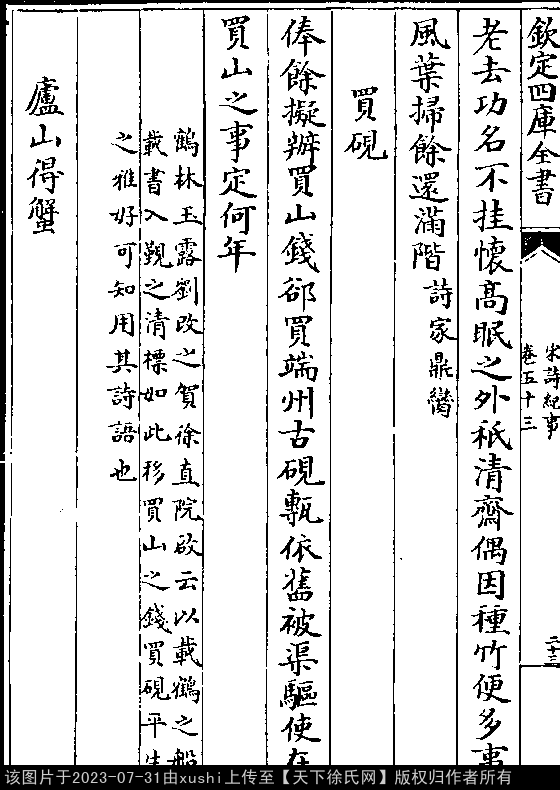 欽定四庫全書
宋詩紀事
卷五十三
二十三
老去功名不挂懷高眠之外祇清齋偶因種竹便多事
風葉掃餘還滿階 詩家鼎臠
買硯
俸餘擬辦買山錢卻買端州古硯甎依舊被渠驅使在
買山之事定何年
鶴林玉露劉改之賀徐直院啟云以載鶴之船
載書入觀之清標如此移買山之錢買硯平生
之雅好可知用其詩語也
廬山得蟹
该图片于2023-07-31由xushi上传至【天下徐氏网】版权归作者所有